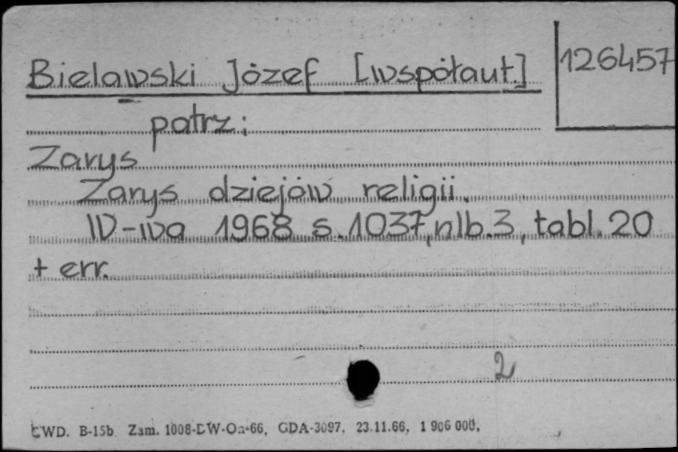 Bielawski Józef [współaut.] 126457
patrz:
Zarys
Zarys dziejów religii.
W-wa 1968 s. 1037, nlb. 3, tabl. 20
+ err.
2
CWD. B-15b. Zam. 1008-DW-Oa-66, GDA-3097, 23.11.66, 1 906 000,